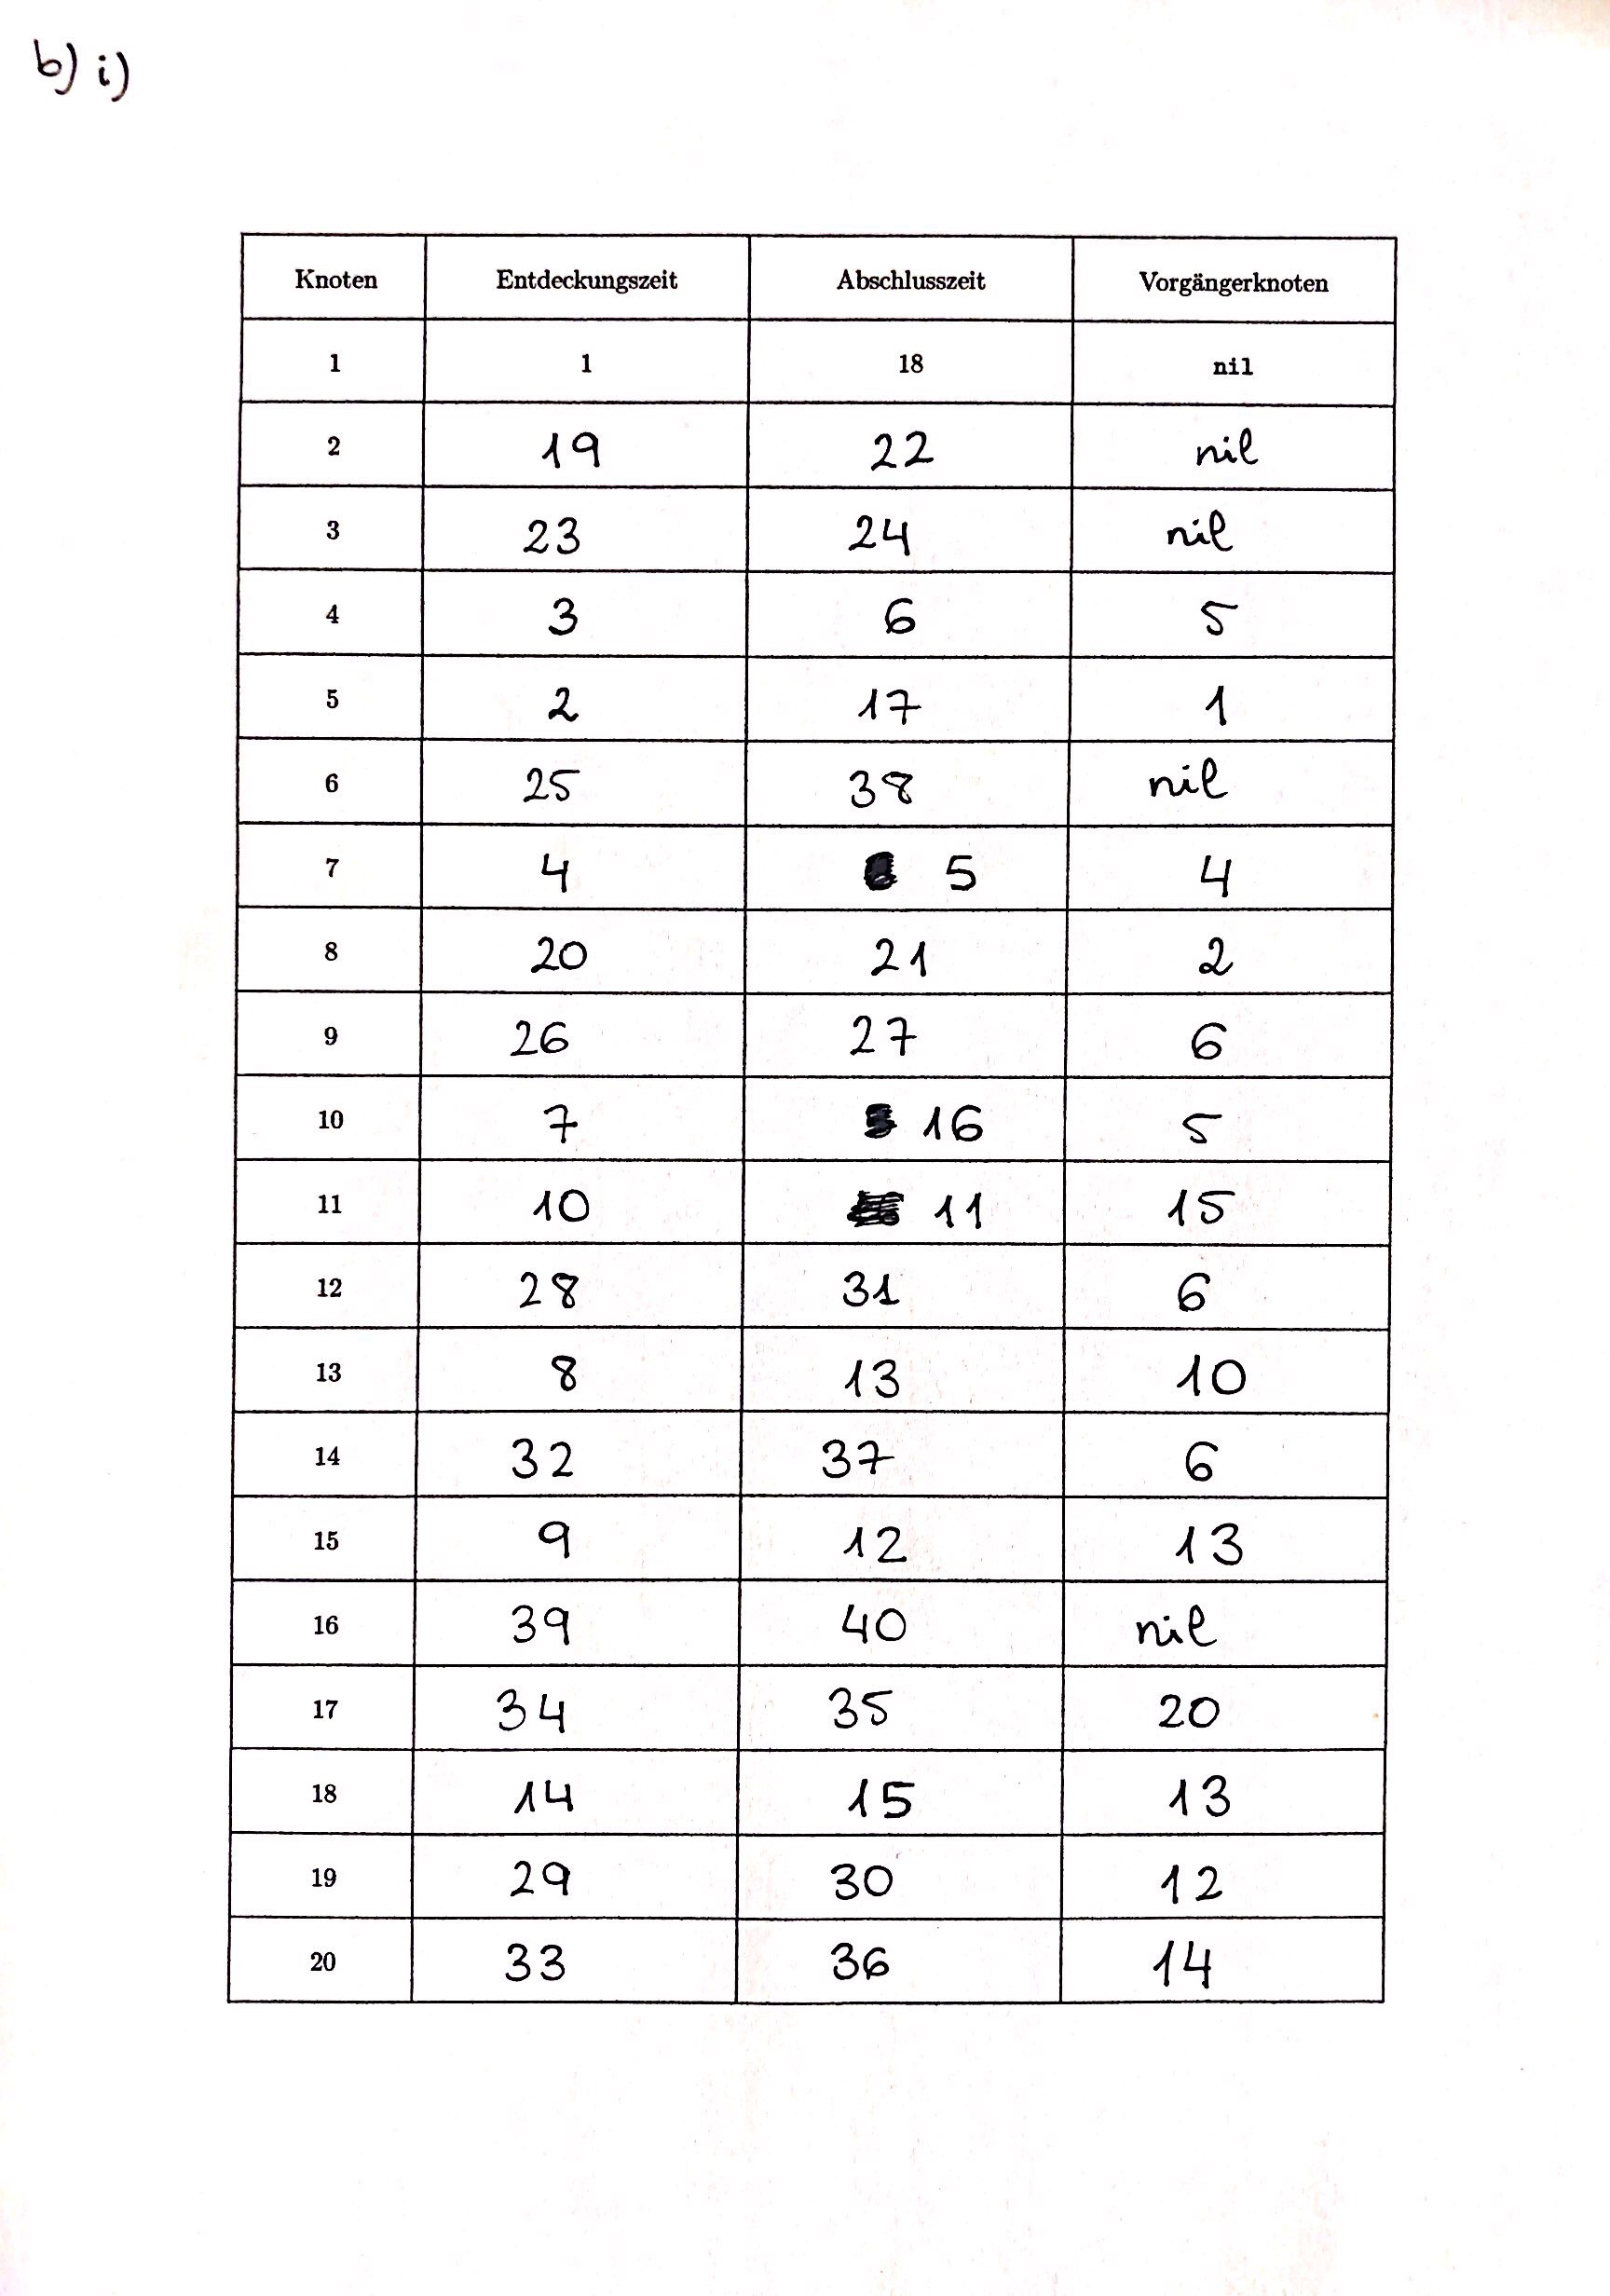 b) i)
Knoten Entdeckungszeit Abschlusszeit Vorgängerknoten
1 1 18 nil
2 19 22 nil
3 23 24 nil
4 3 6 5
5 2 17 1
6 25 38 nil
7 4 5 4
8 20 21 2
9 26 27 6
10 7 16 5
11 10 11 15
12 28 31 6
13 8 13 10
14 32 37 6
15 9 12 13
16 39 40 nil
17 34 35 20
18 14 15 13
19 29 30 12
20 33 36 14